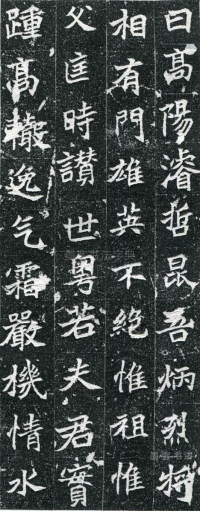 曰高陽濬哲昆吾炳烈將
相有門雄英不絕惟祖惟
父匡時讃世粵若夫君實
踵高轍逸气霜嚴機情水